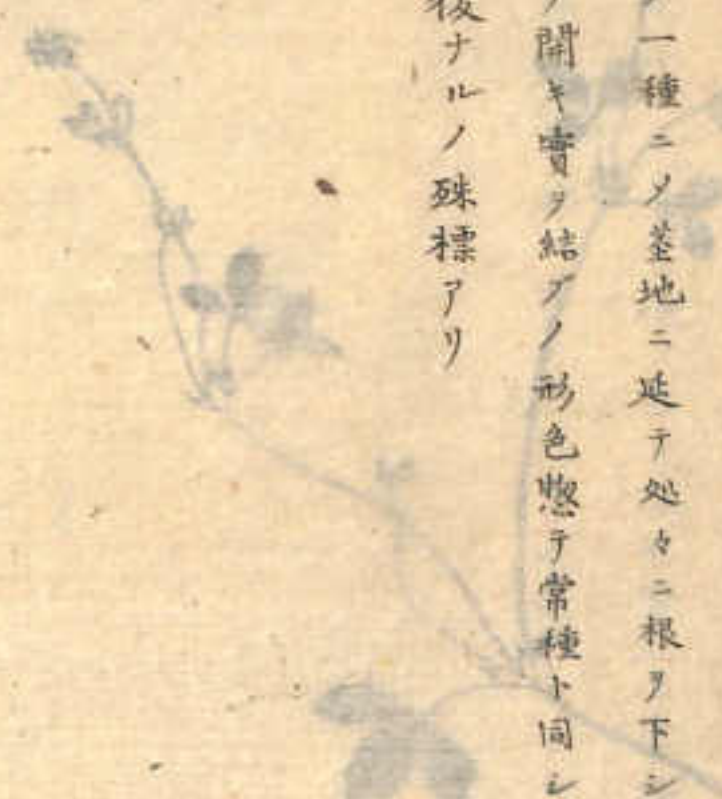 一種ニ〆莖地ニ延テ処々ニ根ヲ下シ
開キ實ヲ結ブノ形色惣テ常種ト同シ
複ナルノ殊標アリ